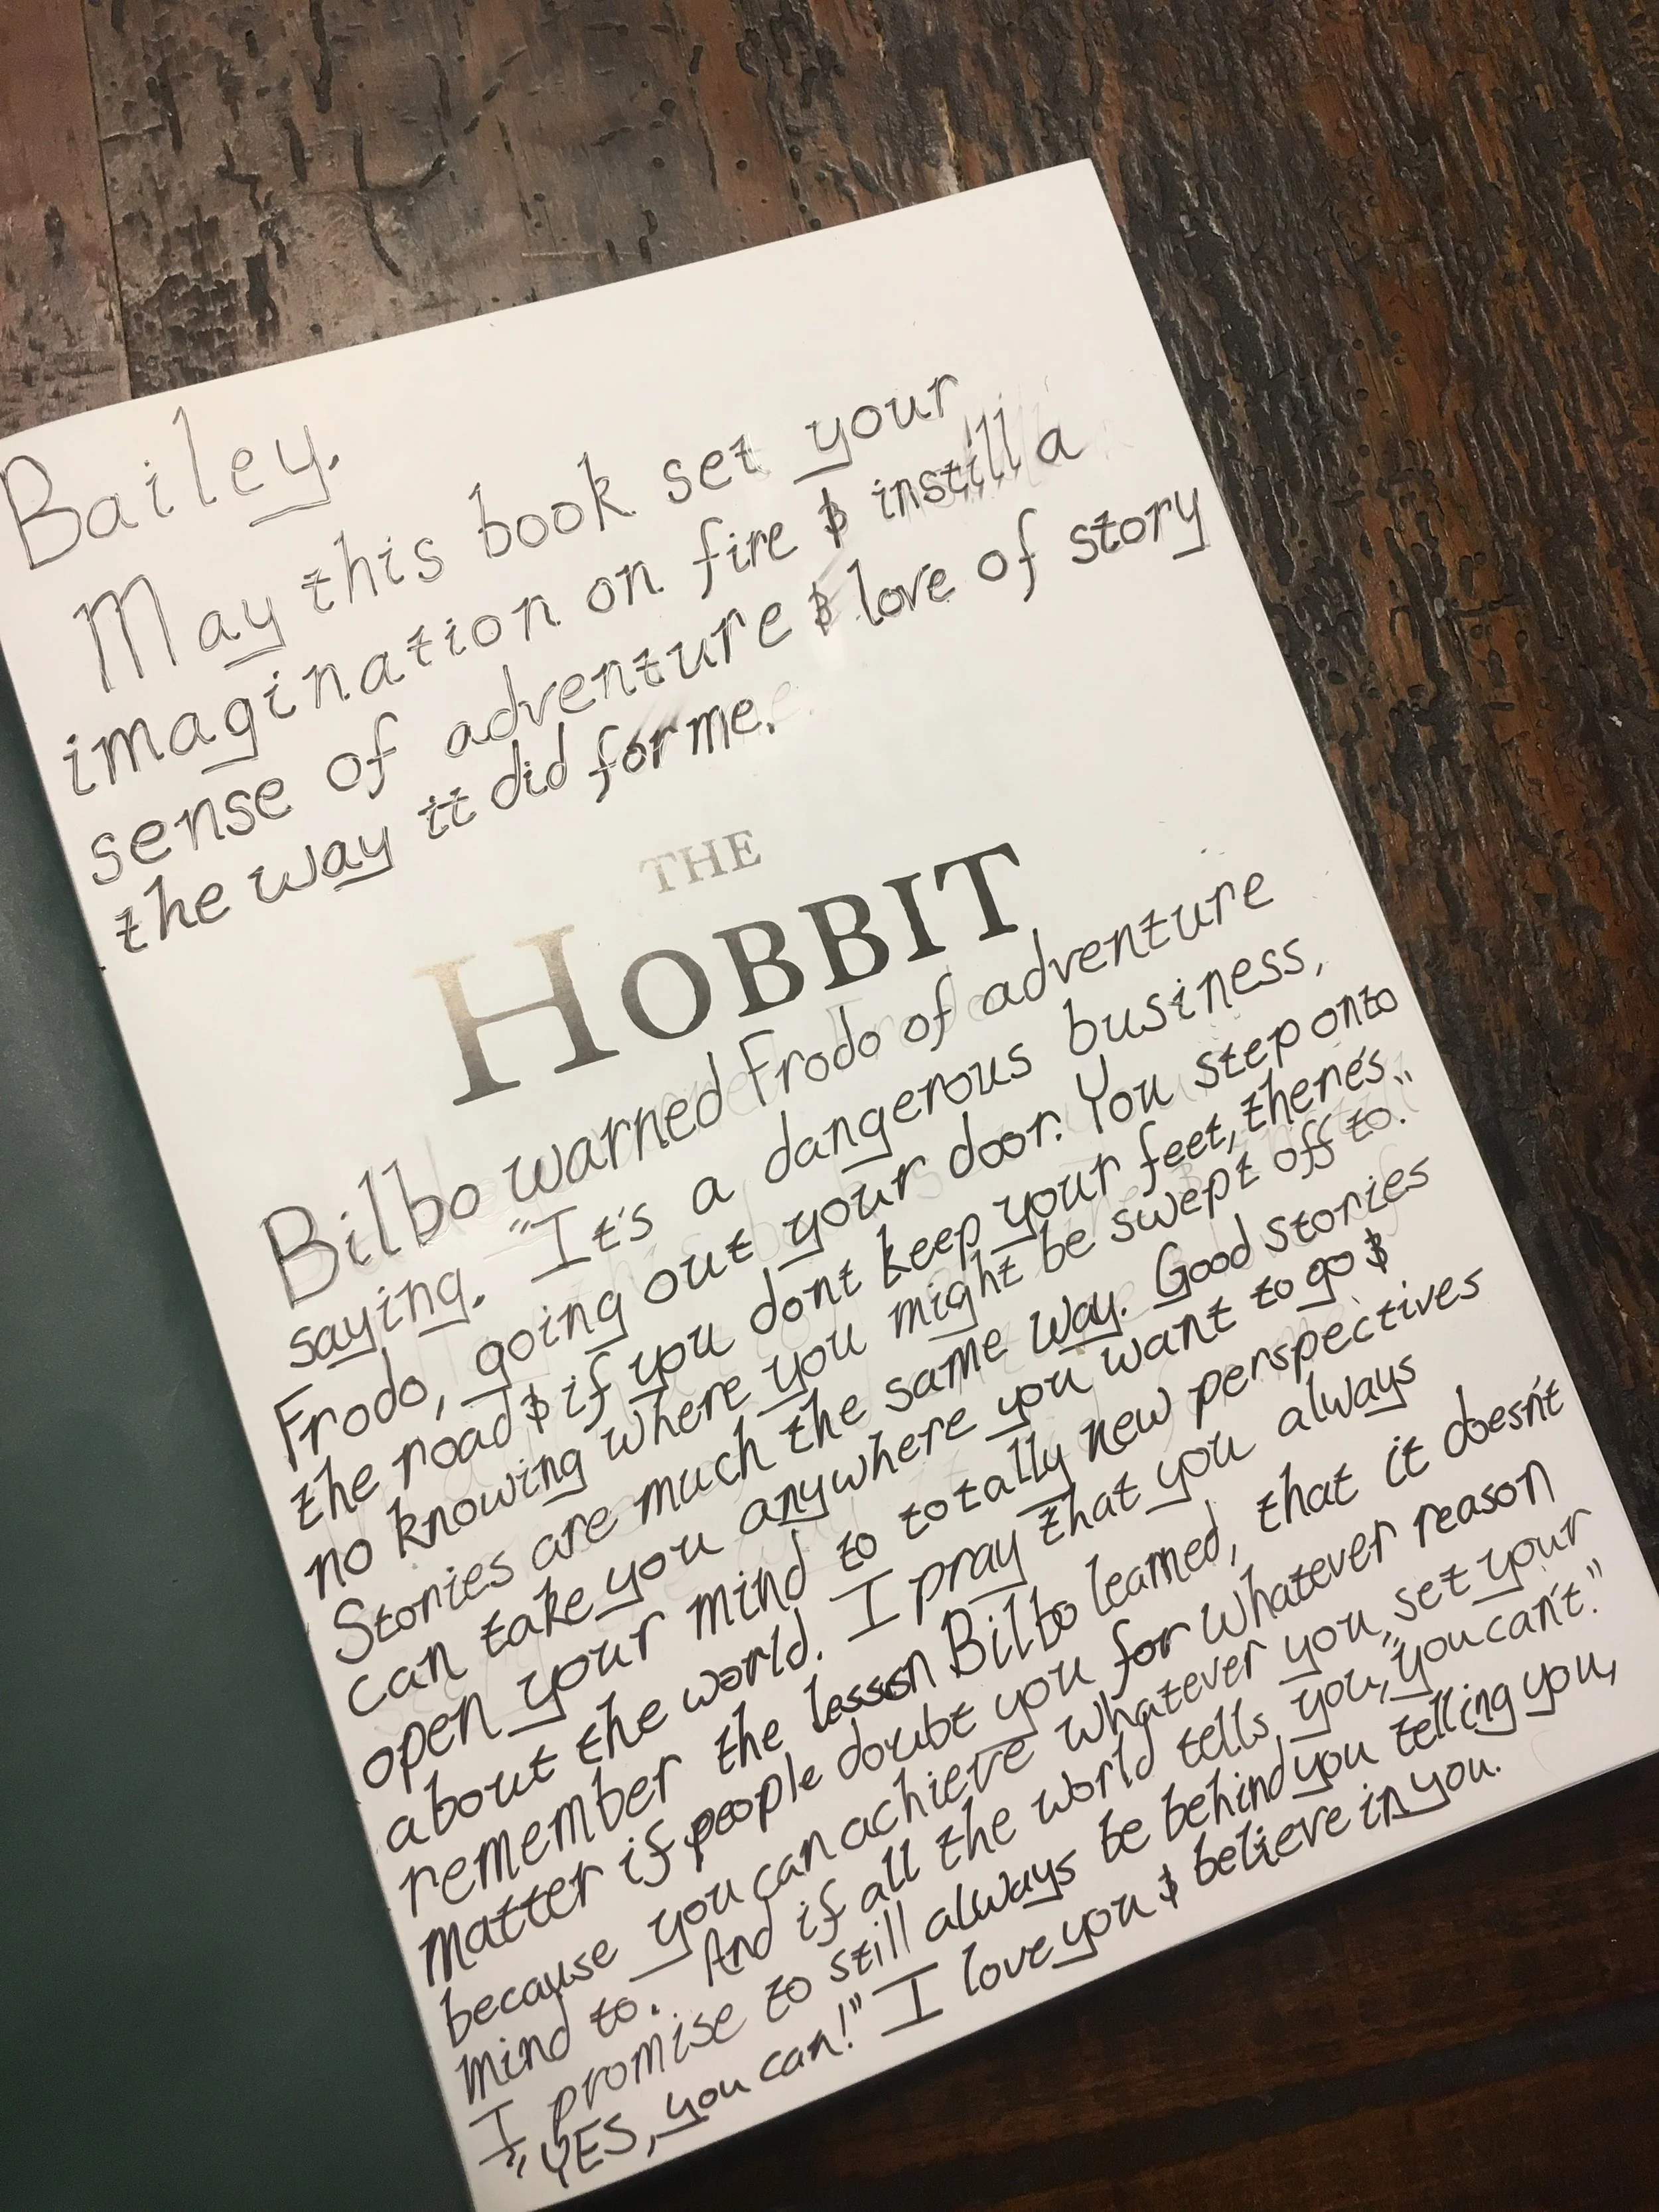 Bailey.
May this book set your
imagination on fire & instill a
sense of adventure & love of story
the way it did for me.
THE
HOBBIT
Bilbo warned Frodo of adventure
saying. "It's a dangerous business,
Frodo, going out your door. You step onto
the road & if you dont keep your feet, there's
no knowing where you might be swept off to."
Stories are much the same way. Good stories
can take you anywhere you want to go &
open your mind to totally new perspectives
about the world. I pray that you always
remember the lesson Bilbo learned, that it doesn't
matter if people doubt you for whatever reason
because you can achieve whatever you set your
mind to. And if all the world tells you, "you can't."
I promise to still always be behind you telling you,
"YES, you can!" I love you & believe in you.